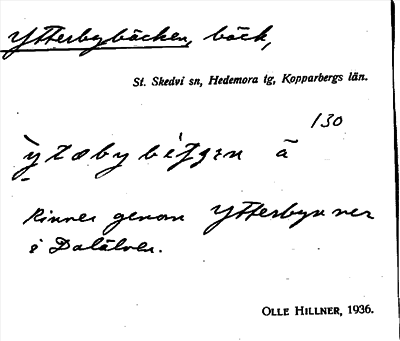 Ytterbybäcken, bäck,
St. Skedvi sn, Hedemora tg, Kopparbergs län.
130
rinner genom Ytterbyn ner
i Dalälven.
OLLE HILLNER, 1936.